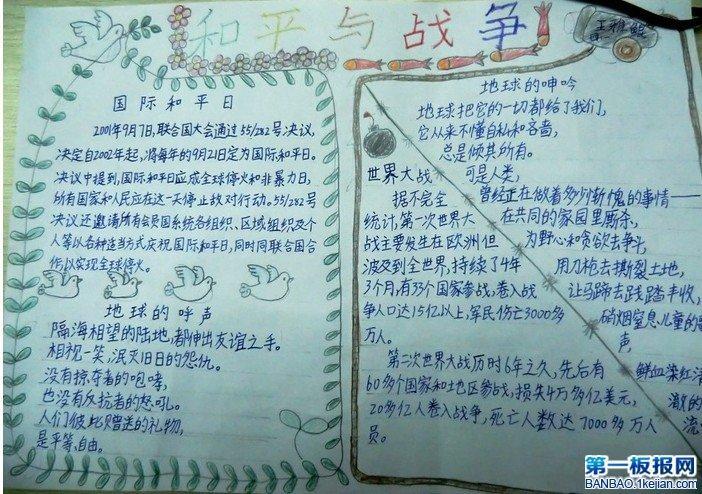 和平与战争
国际和平日
2001年9月7日,联合国大会通过55/282号决议,
决定自2002年起,将每年的9月21日定为国际和平日。
决议中提到,国际和平日应成全球停火和非暴力日,
所有国家和人民应在这一天停止敌对行动。55/282号
决议还邀请所有会员国系统各组织、区域组织及个
人等以各种适当方式庆祝国际和平日,同时同联合国合
作,以实现全球停火。
地球的呼声
隔海相望的陆地,都伸出友谊之手。
相视一笑,泯灭旧日的怨仇。
没有掠夺者的咆哮,
也没有反抗者的怒吼。
人们彼此赠送的礼物,
是平等、自由。
地球的呻吟
地球把它的一切都给了我们,
它从来不懂自私和吝啬,
总是倾其所有。
可是人类,
曾经正在做着多少惭愧的事情——
在共同的家园里厮杀,
为野心和贪欲去争斗,
用刀枪去撕裂土地,
让马蹄去践踏丰收,
硝烟窒息儿童的歌
声,
鲜血染红清
澈的
流
世界大战
据不完全
统计,第一次世界大
战主要发生在欧洲但
波及到全世界,持续了4年
3个月,有33个国家参战,卷入战
争人口达15亿以上,军民伤亡3000多
万人。
第二次世界大战历时6年之久,先后有
60多个国家和地区参战,损失4万多亿美元,
20多亿人卷入战争,死亡人数达7000多万人
员。
第一板报网
BANBAO.1kejian.com